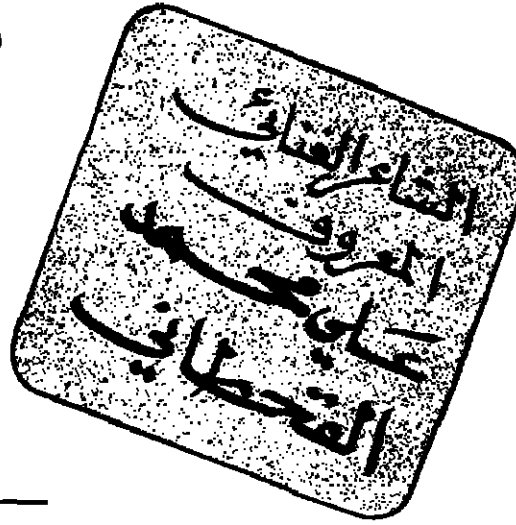 الشاعر الغنائي
المعروف
علي محمد
القحطاني